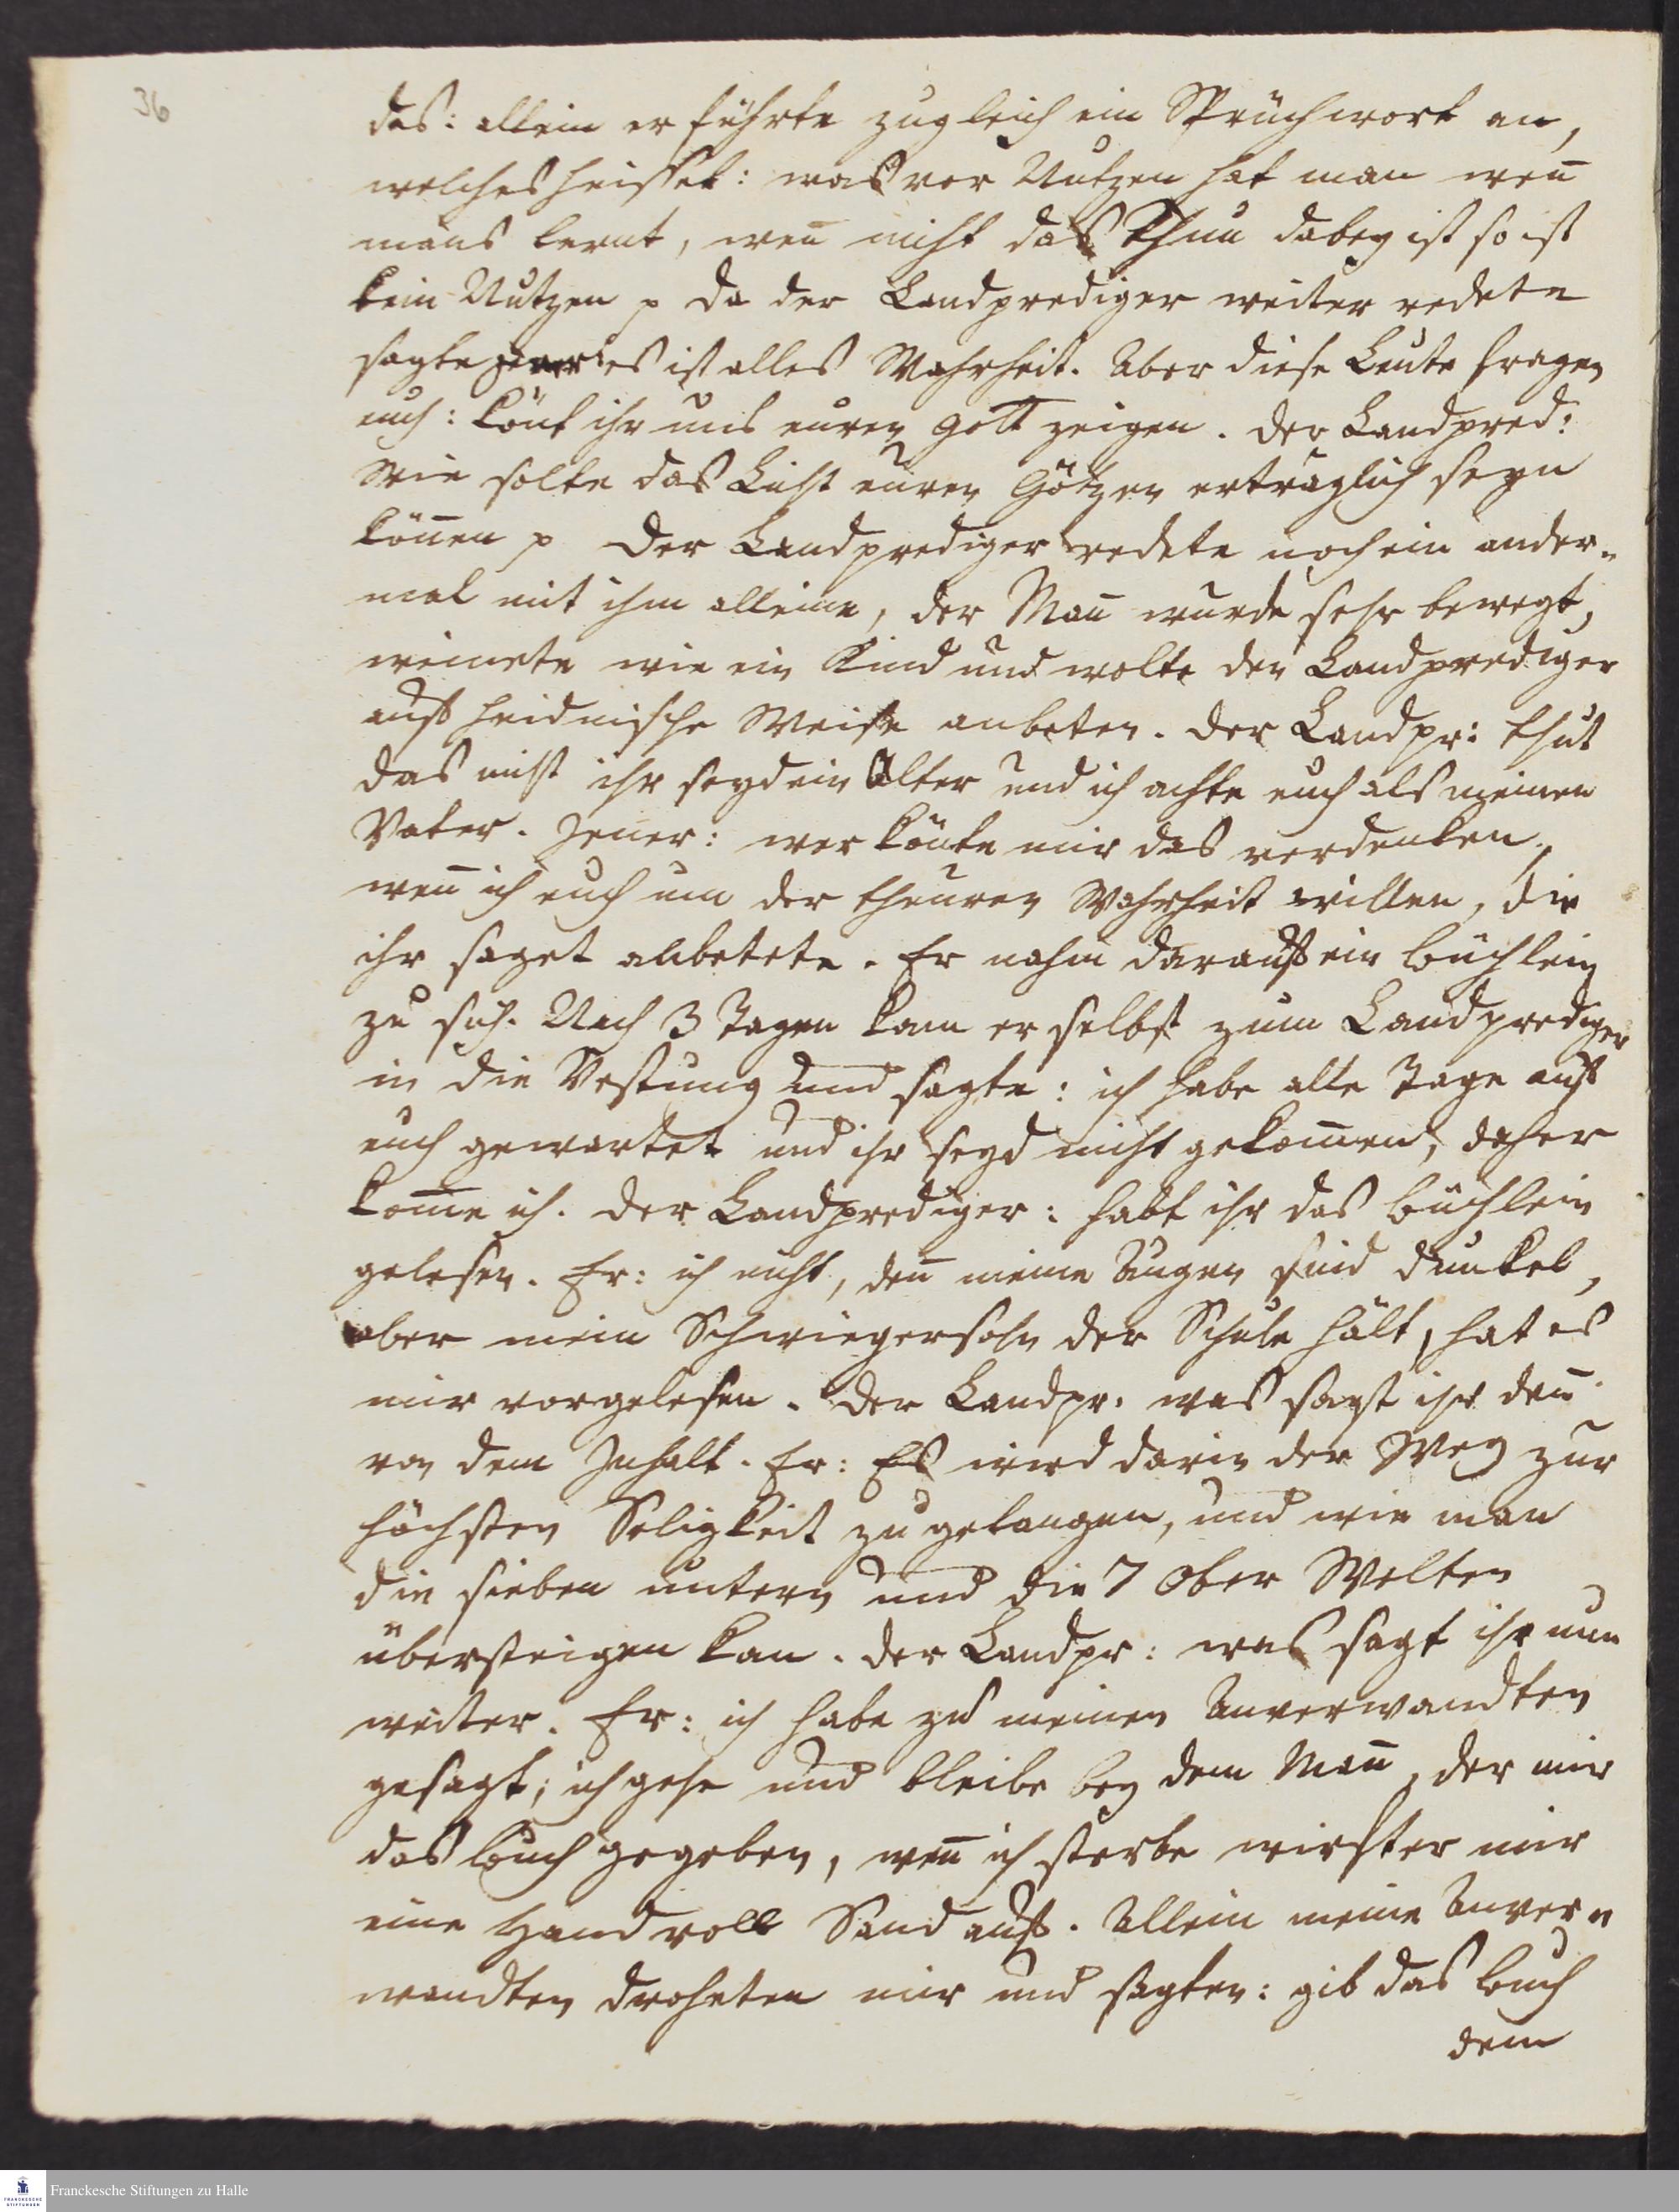 36
das: allein er führte zugleich ein Sprüchwort an,
welches heisset: was vor Nutzen hat man weñ
mans lernt, weñ nicht das Thun dabey ist so ist
kein Nutzen p da der Landprediger weiter redete
sagte jener es ist alles Wahrheit. Aber diese Leute fragen
euch: könt ihr uns euren Gott zeigen. Der Landpred:
Wie solte das Licht euren Götzen erträglich seyn
köñen p Der Landprediger redete noch ein ander-
mal mit ihm alleine, der Mañ wurde sehr bewegt,
weinete wie ein Kind und wolte den Landprediger
auf heidnische Weise anbeten. Der Landpr: thut
das nicht ihr seyd ein Alter und ich achte euch als meinen
Vater. Jener: wer könte mir das verdenken,
weñ ich euch um der theuren Wahrheit willen, die
ihr saget anbetete. Er nahm darauf ein Büchlein
zu sich. Nach 3 Tagen kam er selbst zum Landprediger
in die Vestung und sagte: ich habe alle Tage auf
euch gewartet und ihr seyd nicht gekom̃en, daher
kom̃e ich. Der Landprediger: habt ihr das Büchlein
gelesen. Er: ich nicht, deñ meine Augen sind dunkel,
aber mein Schwiegersohn der Schule hält, hat es
mir vorgelesen. Der Landpr. was sagt ihr deñ
von dem Inhalt. Er: Es wird darin der Weg zur
höchsten Seligkeit zu gelangen, und wie man
die sieben untern und die 7 Ober Welten
übersteigen kan. Der Landpr: was sagt ihr nun
weiter. Er: ich habe zu meinen Anverwandten
gesagt; ich gehe und bleibe bey dem Mañ, der mir
das Buch gegeben, weñ ich sterbe wirfter mir
eine Hand voll Sand auf. Allein meine Anver-
wandten droheten mir und sagten: gib das Buch
dem
Franckesche Stiftungen zu Halle